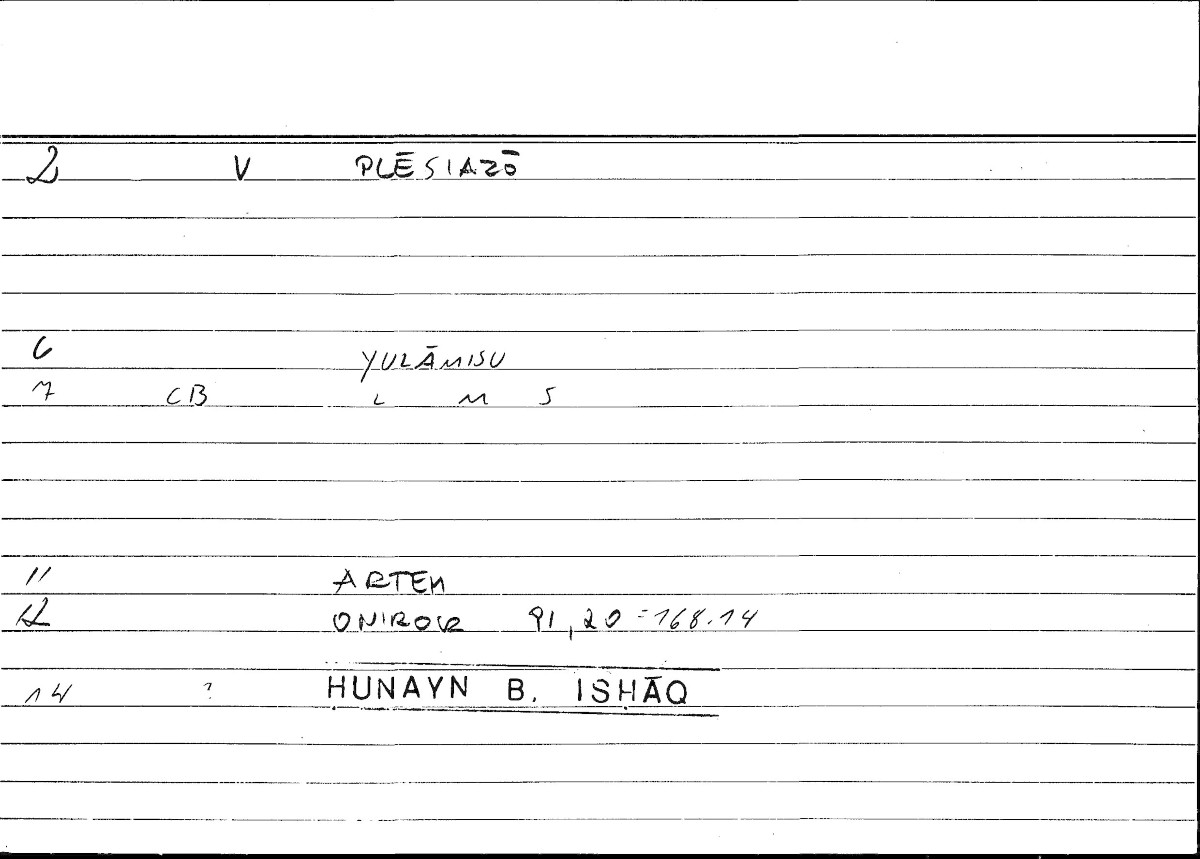 2 V PLĒSIAZŌ
6 YULĀMISU
7 CB L M S
11 ARTEM
12 ONIROCR 91,20=168.14
14 ? ḤUNAYN B. ISḤĀQ